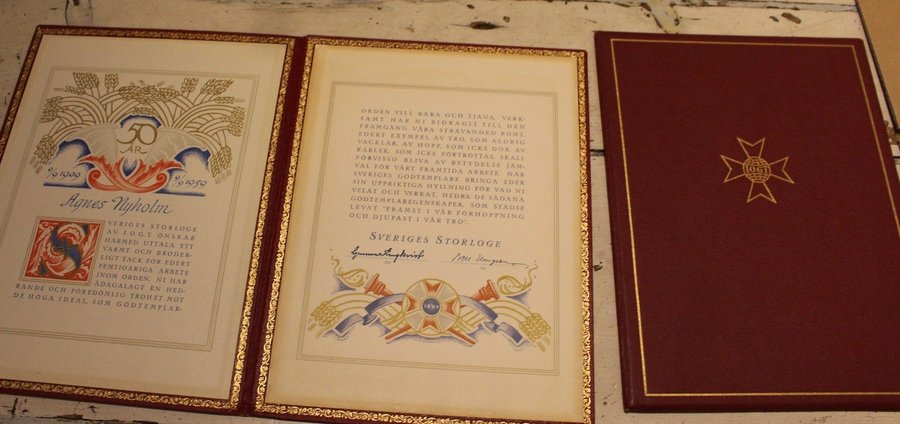 50
ÅR
1909
1959
Agnes Nyholm
SVERIGES STORLOGE
AV I.O.G.T. ÖNSKAR
HÄRMED UTTALA ETT
VARMT OCH BRODER-
LIGT TACK FÖR EDERT
FEMTIOÅRIGA ARBETE
INOM ORDEN. NI HAR
ÅDAGALAGT EN HED-
RANDE OCH FÖREDÖMLIG TROHET MOT
DE HÖGA IDEAL, SOM GODTEMPLAR-
ORDEN VILL BÄRA OCH TJÄNA. VERK-
SAMT HAR NI BIDRAGIT TILL DEN
FRAMGÅNG VÅRA STRÄVANDEN RÖNT.
EDERT EXEMPEL AV TRO, SOM ALDRIG
VACKLAR, AV HOPP, SOM ICKE DÖR, AV
KÄRLEK, SOM ICKE FÖRTROTTAS, SKALL
FÖRVISSO BLIVA AV BETYDELSE JÄM-
VÄL FÖR VÅRT FRAMTIDA ARBETE. NÄR
SVERIGES GODTEMPLARE BRINGA EDER
SIN UPPRIKTIGA HYLLNING FÖR VAD NI
VELAT OCH VERKAT, HEDRA DE SÅDANA
GODTEMPLAREGENSKAPER, SOM STÄDSE
LEVAT "FRÄMST I VÅR FÖRHOPPNING
OCH DJUPAST I VÅR TRO".
SVERIGES STORLOGE
IOGT
IOGT